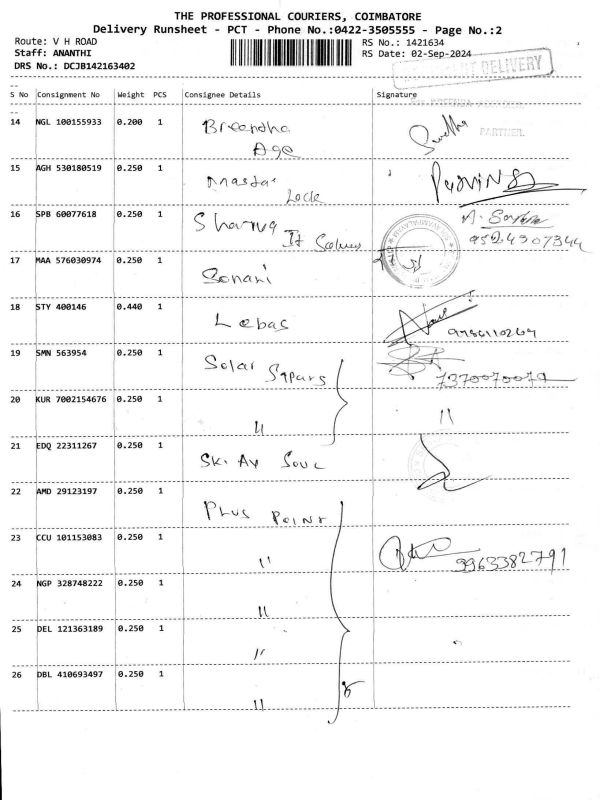 THE PROFESSIONAL COURIERS, COIMBATORE
Delivery Runsheet - PCT - Phone No.:0422-3505555 - Page No.:2
Route: V H ROAD
RS No.: 1421634
Staff: ANANTHI
RS Date: 02-Sep-2024
DRS No.: DCJB142163402
DELIVERY
S No Consignment No Weight PCS Consignee Details Signature
14 NGL 100155933 0.200 1 Breendha
Age
PARTNER.
15 AGH 530180519 0.250 1 Mastar
Lock
16 SPB 60077618 0.250 1 Sharma
It
9524307344
17 MAA 576030974 0.250 1 Sonani
18 STY 400146 0.440 1 Lebas
9786110264
19 SMN 563954 0.250 1 Solar
Squars
7370070079
20 KUR 7002154676 0.250 1 "
"
21 EDQ 22311267 0.250 1
22 AMD 29123197 0.250 1 Plus Point
23 CCU 101153083 0.250 1 "
9963382791
24 NGP 328748222 0.250 1 "
25 DEL 121363189 0.250 1 "
26 DBL 410693497 0.250 1 "